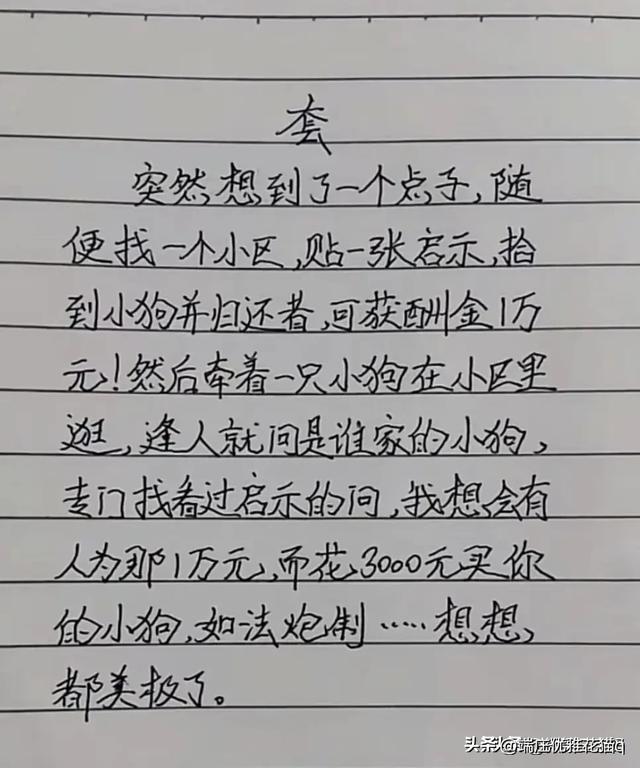 套
突然想到了一个点子,随
便找一个小区,贴一张启示,拾
到小狗并归还者,可获酬金1万
元!然后牵着一只小狗在小区里
逛,逢人就问是谁家的小狗,
专门找看过启示的问,我想会有
人为那1万元,而花3000元买你
的小狗,如法炮制……想想,
都美极了。
头条 @端庄优雅花猫q